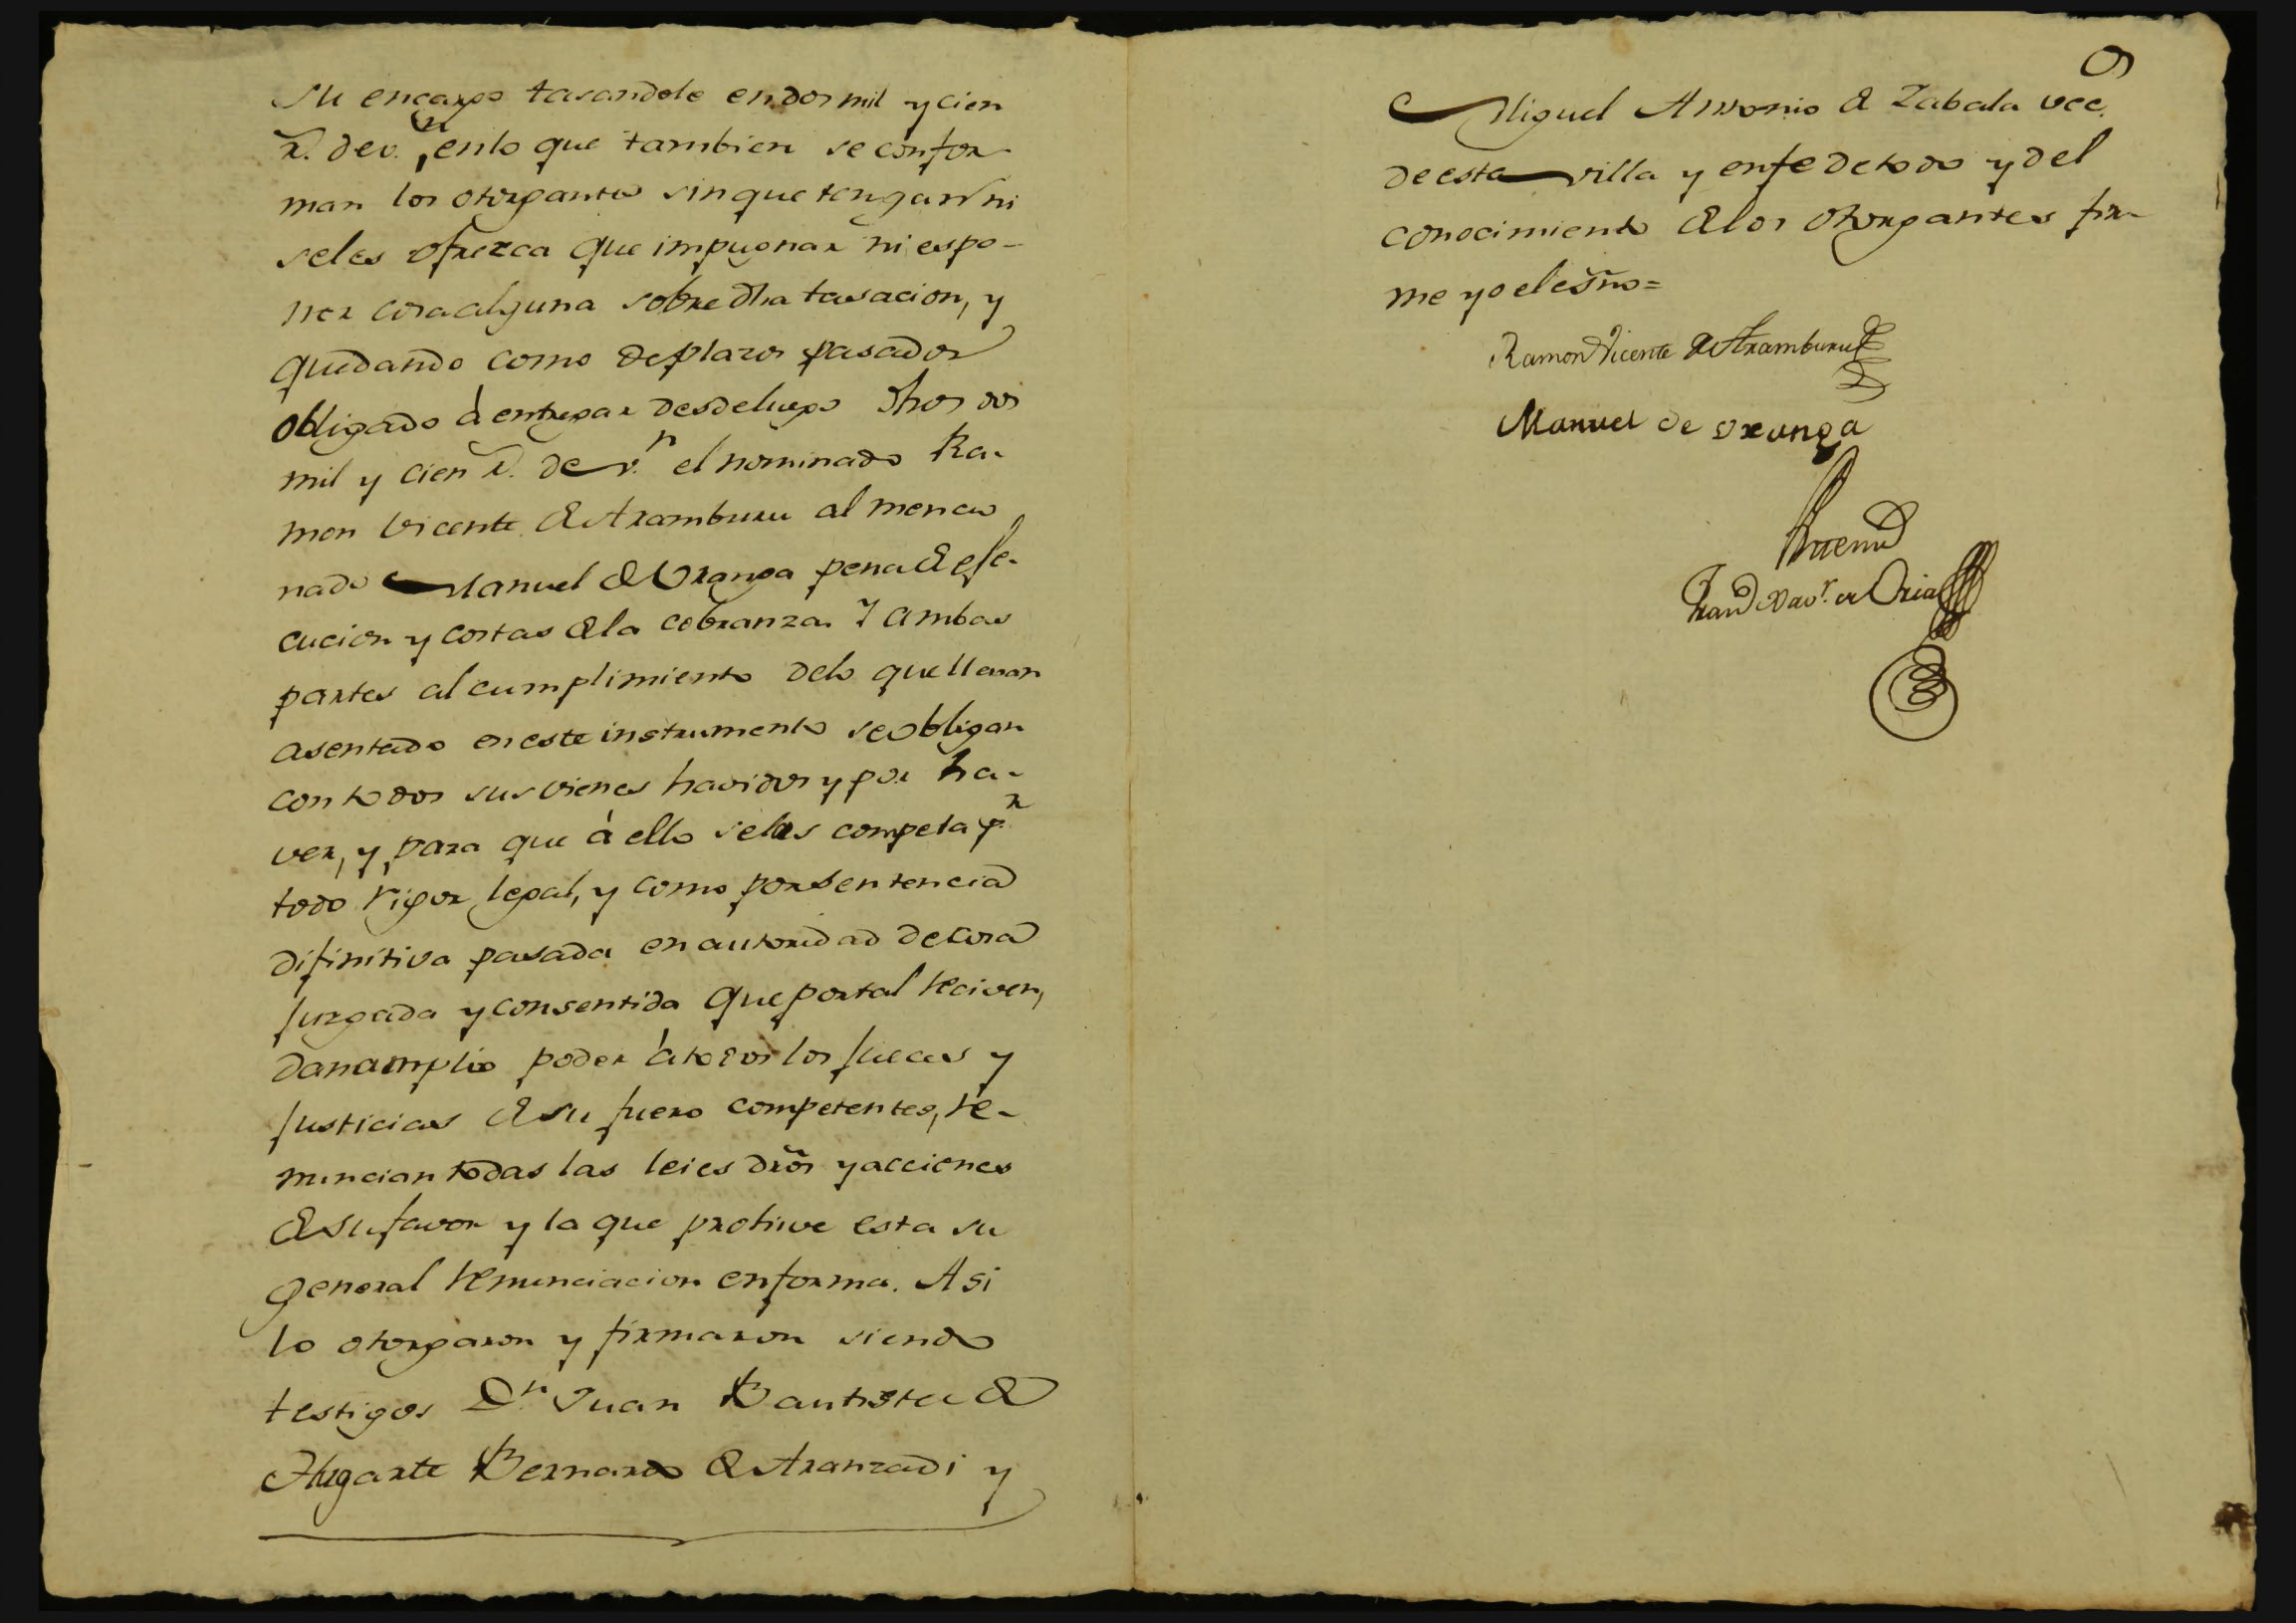 su encargo tasandole en dos mil y cien
r.^s de v.^n, en lo que tambien se confor-
man los otorgantes sin que tengan ni
seles ofrezca que impugnar ni espo-
ner cosa alguna sobre dha tasacion, y
quedando como de plazos pasados
obligado á entregar desde luego dhos dos
mil y cien r.^s de v.^n el nominado Ra-
mon Vicente de Aramburu al mencio
nado Manuel de Uranga pena de ese-
cucion y costas de la cobranza. Y ambas
partes al cumplimiento de lo que llevan
asentado en este instrumento se obligan
con todos sus vienes havidos y por ha-
ver, y para que á ello seles compela p.^r
todo rigor legal, y como por sentencia
difinitiva pasada en autoridad de cosa
juzgada y consentida que por tal reciven,
dan amplio poder á todos los jueces y
justicias de su fuero competentes, re-
nuncian todas las leies dr̃os y acciones
de su favor y la que prohive esta su
general renunciacion en forma. Asi
lo otorgaron y firmaron siendo
testigos D.^n Juan Bautista de
Bernardo de Aranzadi y
9
Miguel Antonio de Zabala vec.
de esta villa y en fe de todo y del
conocimiento de los otorgantes fir-
me yo el esño=
Ramon Vicente de Aramburu
Manuel de Uranga
Fran.^co Xav.^r de Oria